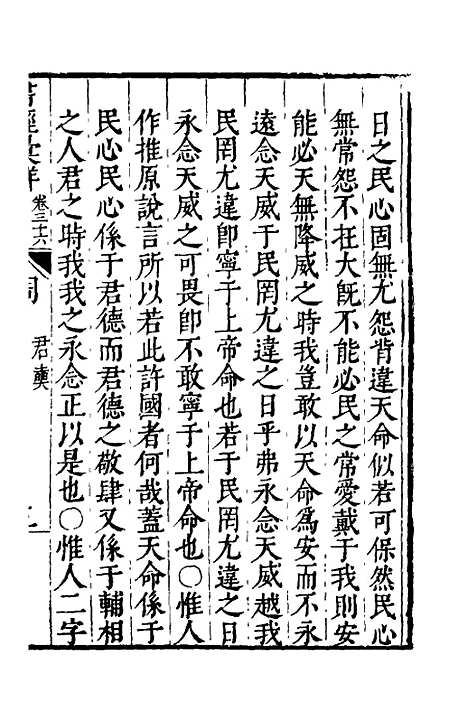 日之民心固無尤怨背違天命似若可保然民心
無常怨不在大既不能必民之常愛戴于我則安
能必天無降威之時我豈敢以天命爲安而不永
遠念天威于民罔尤違之日乎弗永念天威越我
民罔尤違即寧于上帝命也若于民罔尤違之日
永念天威之可畏即不敢寧于上帝命也○惟人
作推原說言所以若此許國者何哉蓋天命係于
民心民心係于君德而君德之敬肆又係于輔相
之人君之時我我之永念正以是也○惟人二字
卷三十六
君奭